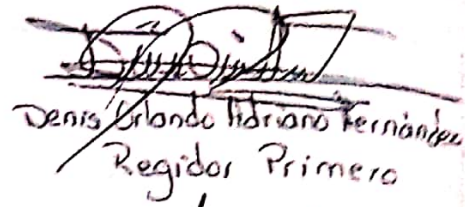 Denis Orlando Adriano Fernández
Regidor Primero